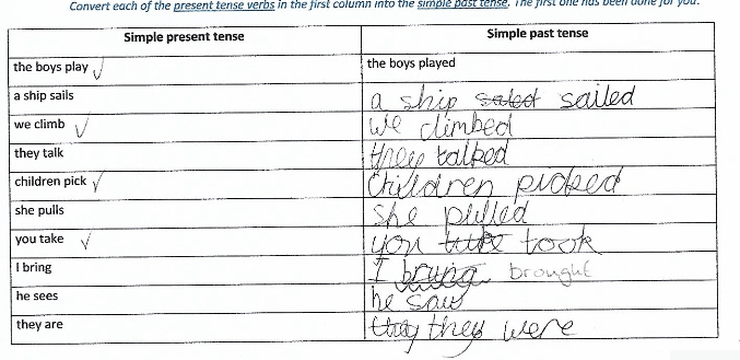 Convert each of the present tense verbs in the first column into the simple past tense. The first one has been done for you.
Simple present tense Simple past tense
the boys play the boys played
a ship sails a ship saled sailed
we climb we climbed
they talk they talked
children pick Children picked
she pulls she pulled
you take you take took
I bring I bring brought
he sees he saw
they are they they were